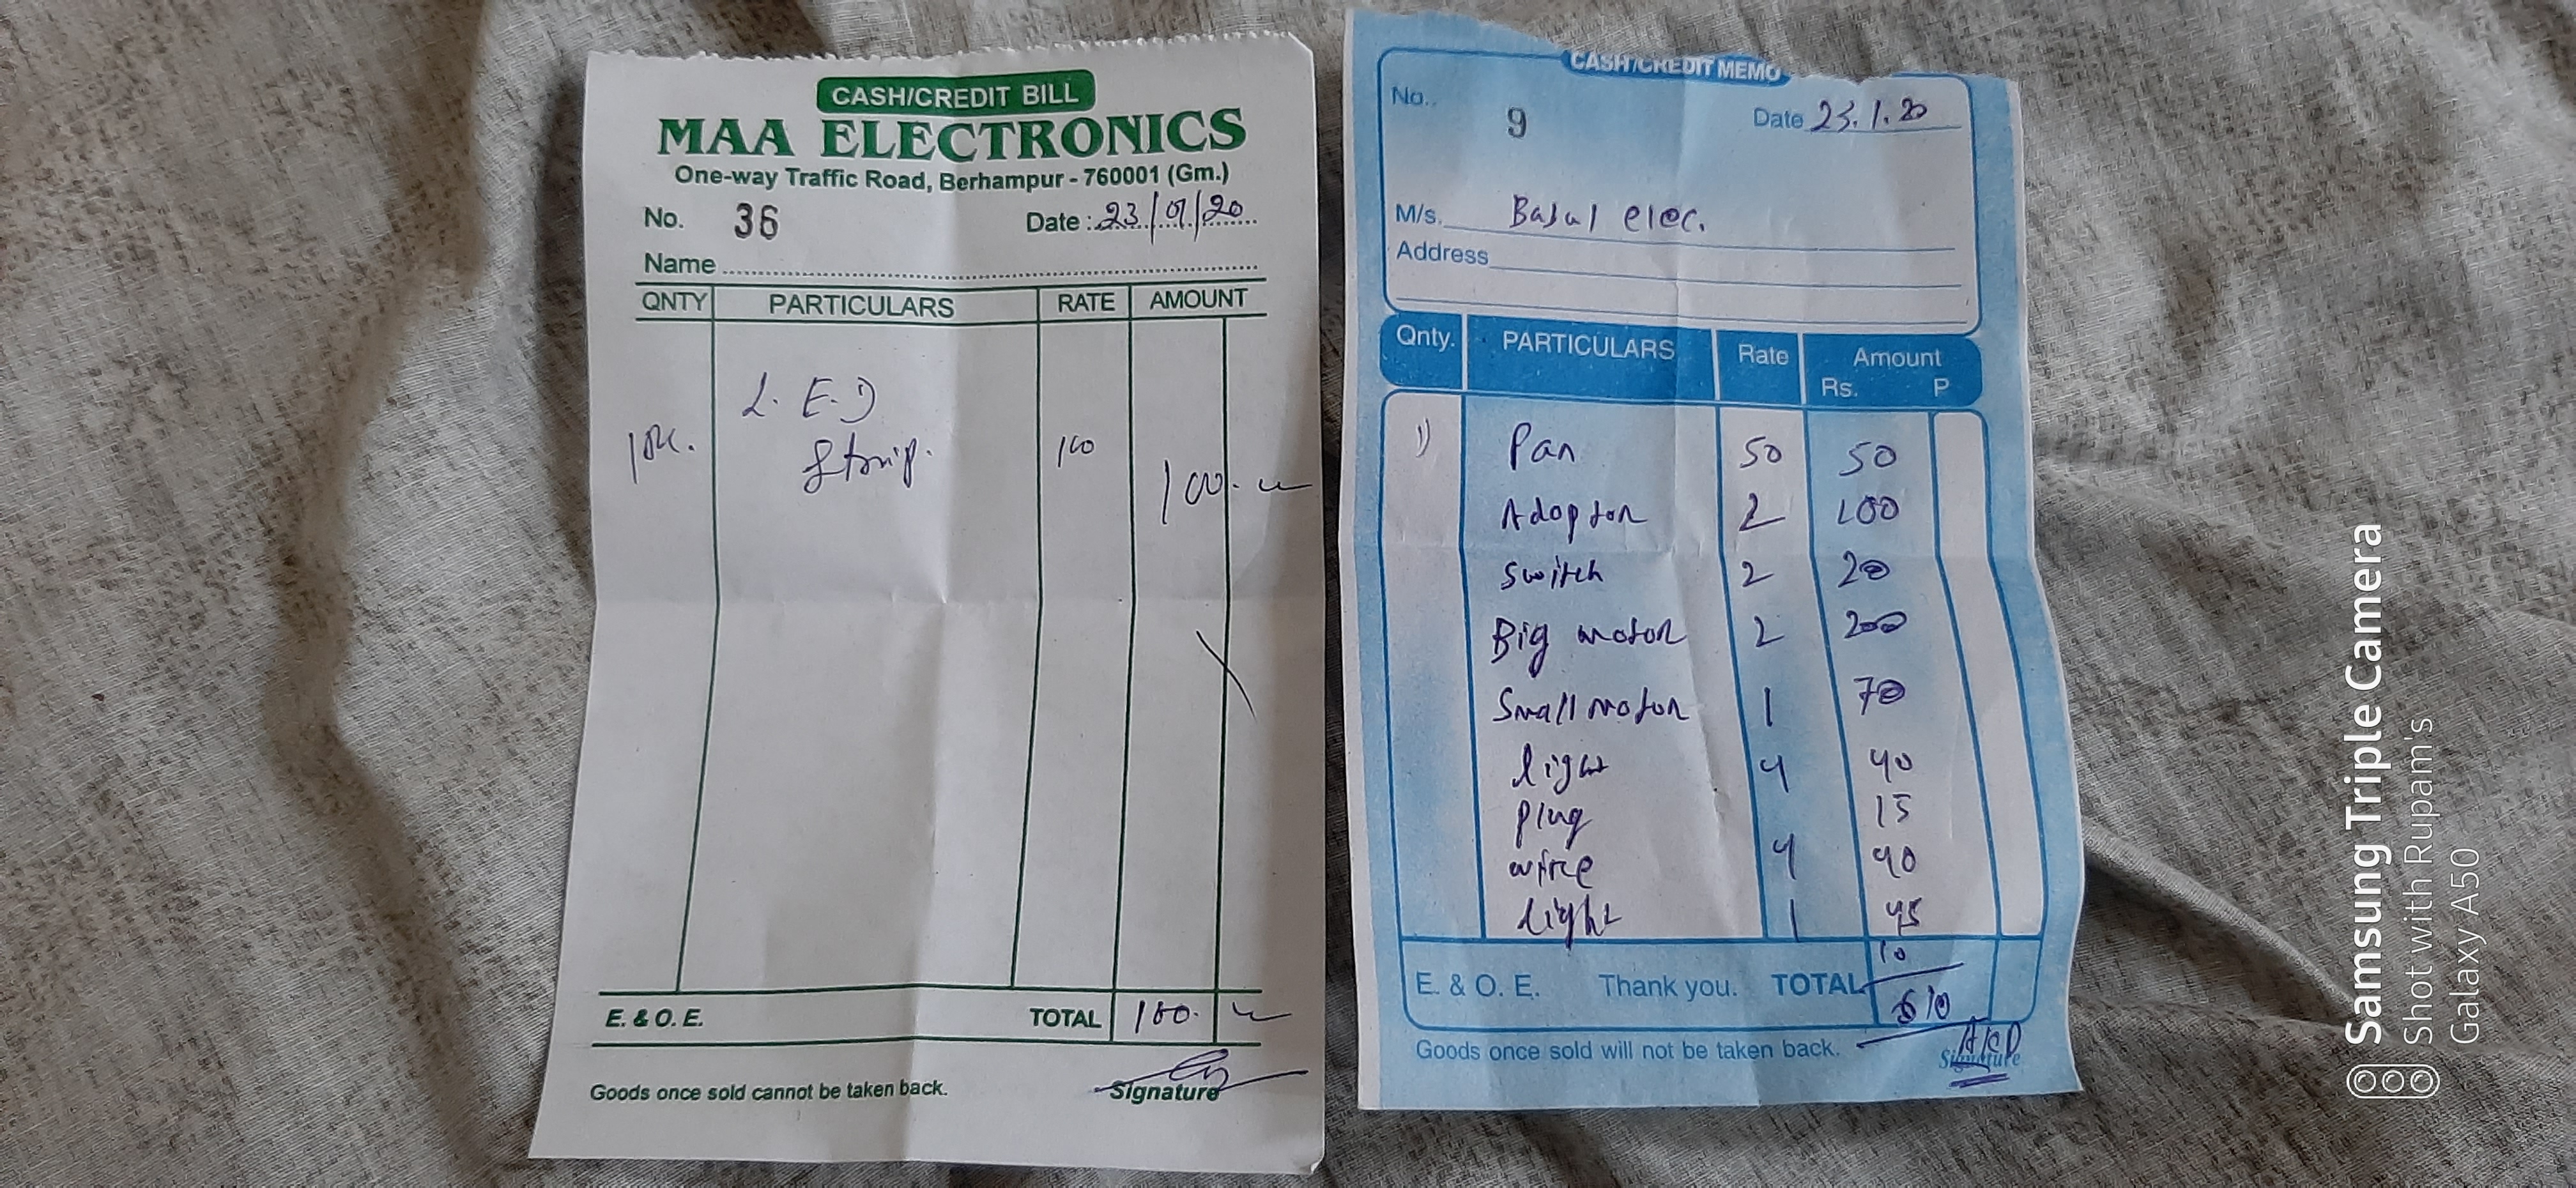 CASH/CREDIT BILL
MAA ELECTRONICS
One-way Traffic Road, Berhampur - 760001 (Gm.)
No. 36 Date : 23/01/20
Name
QNTY PARTICULARS RATE AMOUNT
L.E.D
1 Strip. 100 100.
E. & O. E. TOTAL 100.
Signature
Goods once sold cannot be taken back.
CASH/CREDIT MEMO
No. 9 Date 23.1.20
M/s. Basul elec.
Address
Qnty. PARTICULARS Rate Amount
Rs. P
1) Pan 50 50
Adopton 2 100
switch 2 20
Big moton 2 200
Small moton 1 70
light 4 40
plug 15
wire 4 40
light 1 45
10
E. & O. E. Thank you. TOTAL
Signature
Goods once sold will not be taken back.
Samsung Triple Camera
Shot with Rupam's
Galaxy A50